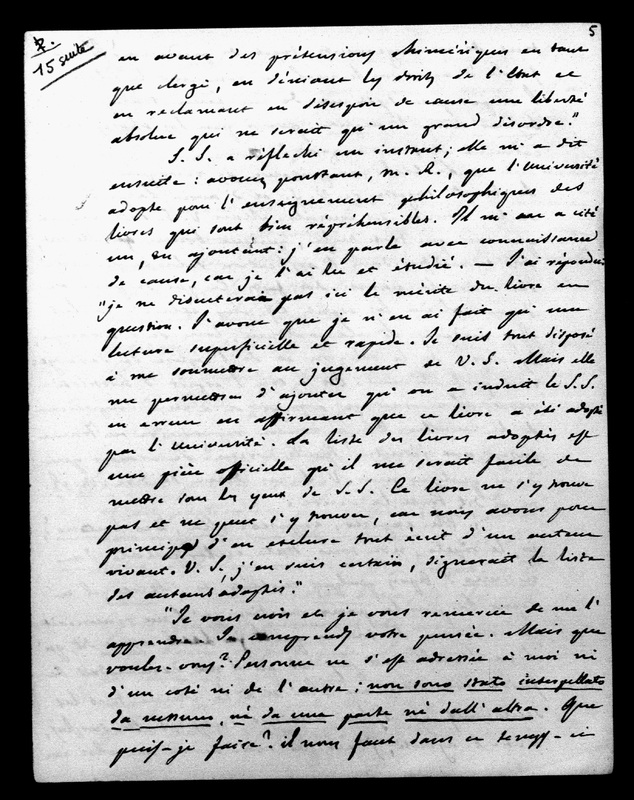 5
15 suite
en avant des prétensions chimériques en tant
que clergé, en déniant les droits de l'Etat et
en réclamant en désespoir de cause une liberté
absolue qui ne serait qu'un grand désordre."
S. S. a réfléchi un instant; elle m'a dit
ensuite: avouez pourtant, m. R., que l'Université
adopte pour l'enseignement philosophique des
livres qui sont bien répréhensibles. Il m'en a cité
un, en ajoutant: j'en parle avec connaissance
de cause, car je l'ai lu et étudié. — J'ai répondu:
"je ne discuterai pas ici le mérite du livre en
question. J'avoue que je n'en ai fait qu'une
lecture superficielle et rapide. Je suis tout disposé
à me soumettre au jugement de V. S. Mais elle
me permettra d'ajouter qu'on a induit le S. S.
en erreur en affirmant que ce livre a été adopté
par l'Université. La liste des livres adoptés est
une pièce officielle qu'il me serait facile de
mettre sous les yeux de S. S. Ce livre ne s'y trouve
pas et ne peut s'y trouver, car nous avons pour
principe d'en exclure tout écrit d'un auteur
vivant. V. S., j'en suis certain, signerait la liste
des auteurs adoptés."
"Je vous crois et je vous remercie de me l'
apprendre. Je comprends votre pensée. Mais que
voulez-vous? Personne ne s'est adressée à moi ni
d'un coté ni de l'autre; non sono stato interpellato
da nessuno, nè da una parte nè dall'altra. Que
puis-je faire? il nous faut dans ce temps-ci